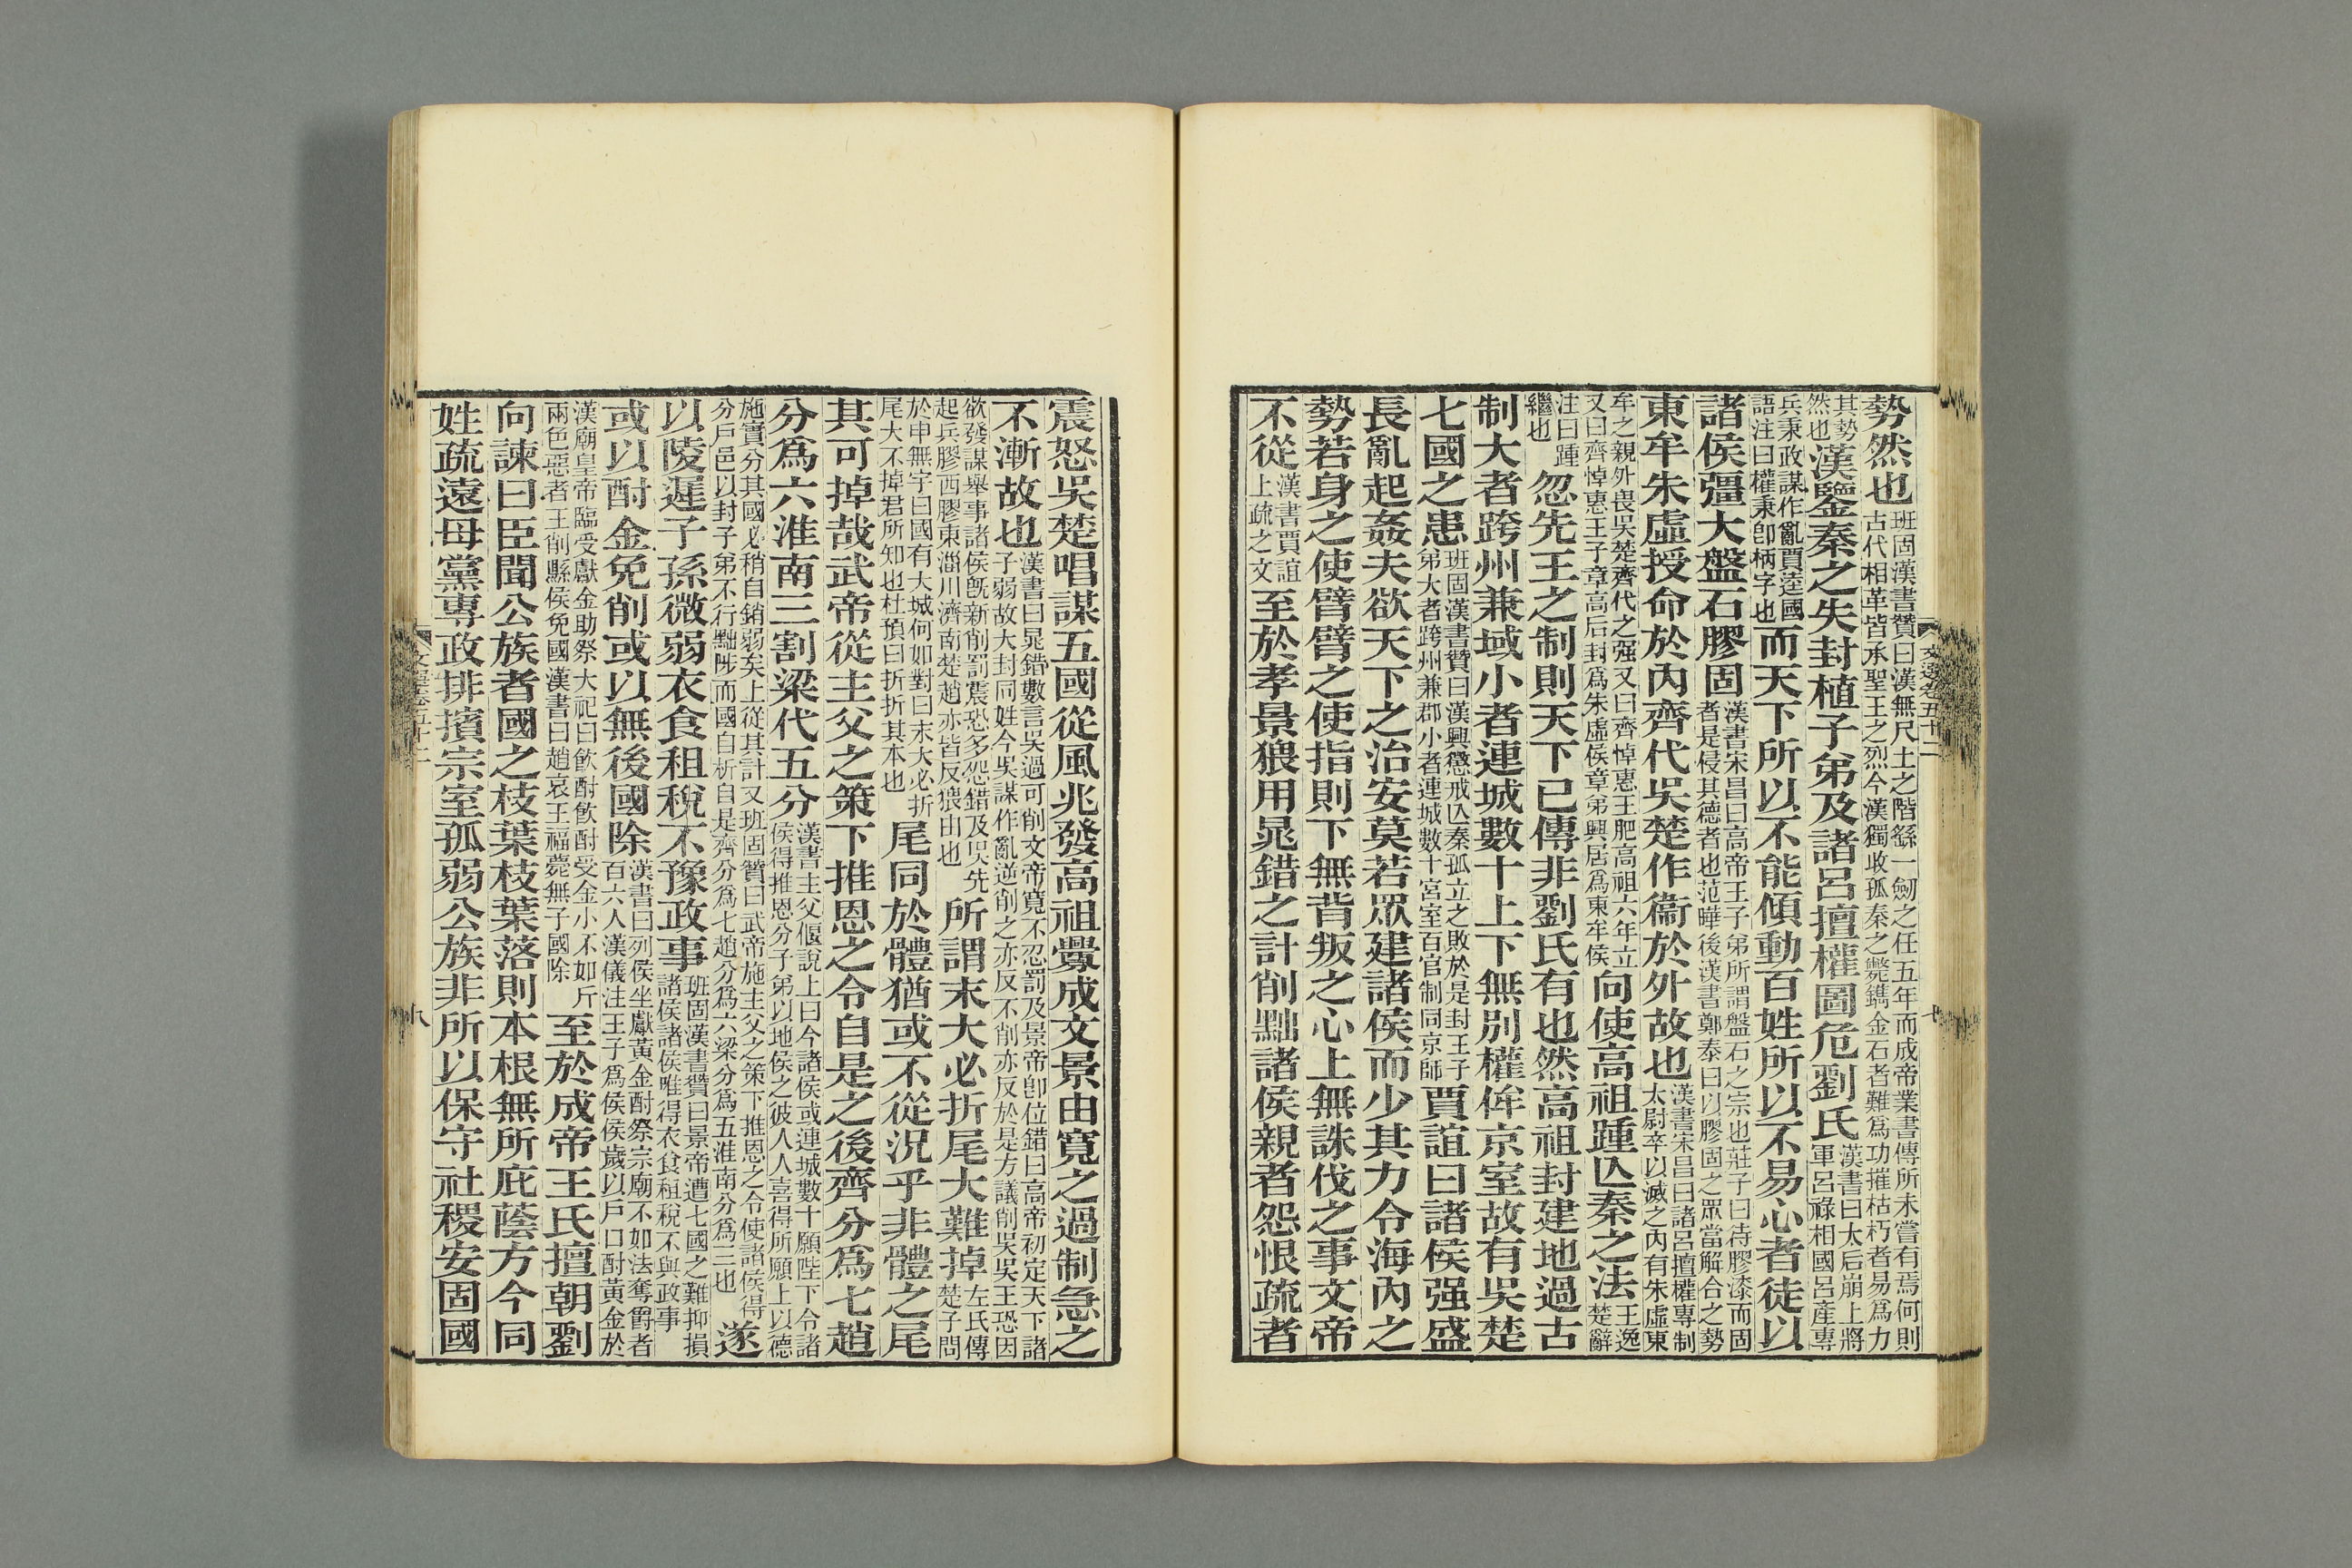 勢然也班固漢書贊曰漢無尺土之階繇一劒之任五年而成帝業書傳所未嘗有焉何則古代相革皆承聖王之烈今漢獨收孤秦之斃鐫金石者難爲功摧枯朽者易爲力
其勢然也漢鑒秦之失封植子弟及諸呂擅權圖危劉氏漢書曰太后崩上將軍呂祿相國呂產專
兵秉政謀作亂賈逵國語注曰權秉卽柄字也而天下所以不能傾動百姓所以不易心者徒以
諸侯彊大盤石膠固漢書宋昌曰高帝王子弟所謂盤石之宗也莊子曰待膠漆而固者是侵其德者也范曄後漢書鄭泰曰以膠固之眾當解合之勢
東牟朱虛授命於內齊代吳楚作衞於外故也漢書宋昌曰諸呂擅權專制太尉卒以滅之內有朱虛東
牟之親外畏吳楚齊代之强又曰齊悼惠王肥高祖六年立又曰齊悼惠王子章高后封爲朱虛侯章弟興居爲東牟侯向使高祖踵亾秦之法王逸楚辭
注曰踵繼也忽先王之制則天下已傳非劉氏有也然高祖封建地過古
制大者跨州兼域小者連城數十上下無別權侔京室故有吳楚
七國之患班固漢書贊曰漢興懲戒亾秦孤立之敗於是封王子弟大者跨州兼郡小者連城數十宮室百官制同京師賈誼曰諸侯强盛
長亂起姦夫欲天下之治安莫若眾建諸侯而少其力令海內之
勢若身之使臂臂之使指則下無背叛之心上無誅伐之事文帝
不從漢書賈誼上疏之文至於孝景猥用晁錯之計削黜諸侯親者怨恨疏者
文選卷五十二
七
震怒吳楚唱謀五國從風兆發高祖釁成文景由寬之過制急之
不漸故也漢書曰晁錯數言吳過可削文帝寬不忍罰及景帝卽位錯曰高帝初定天下諸子弱故大封同姓今吳謀作亂逆削之亦反不削亦反於是方議削吳吳王恐因
欲發謀舉事諸侯旣新削罰震恐多怨錯及吳先起兵膠西膠東淄川濟南楚趙亦皆反猥由也所謂末大必折尾大難掉左氏傳楚子問
於申無宇曰國有大城何如對曰末大必折尾大不掉君所知也杜預曰折折其本也尾同於體猶或不從況乎非體之尾
其可掉哉武帝從主父之策下推恩之令自是之後齊分爲七趙
分爲六淮南三割梁代五分漢書主父偃說上曰今諸侯或連城數十願陛下令諸侯得推恩分子弟以地侯之彼人人喜得所願上以德
施實分其國必稍自銷弱矣上從其計又班固贊曰武帝施主父之策下推恩之令使諸侯得分戶邑以封子弟不行黜陟而國自析自是齊分爲七趙分爲六梁分爲五淮南分爲三也遂
以陵遲子孫微弱衣食租稅不豫政事班固漢書贊曰景帝遭七國之難抑損諸侯諸侯唯得衣食租稅不與政事
或以酎金免削或以無後國除漢書曰列侯坐獻黃金酎祭宗廟不如法奪爵者百六人漢儀注王子爲侯侯歲以戶口酎黃金於
漢廟皇帝臨受獻金助祭大祀曰飲酎飲酎受金小不如斤兩色惡者王削縣侯免國漢書曰趙哀王福薨無子國除至於成帝王氏擅朝劉
向諫曰臣聞公族者國之枝葉枝葉落則本根無所庇蔭方今同
姓疏遠母黨專政排擯宗室孤弱公族非所以保守社稷安固國
文選卷五十二
八